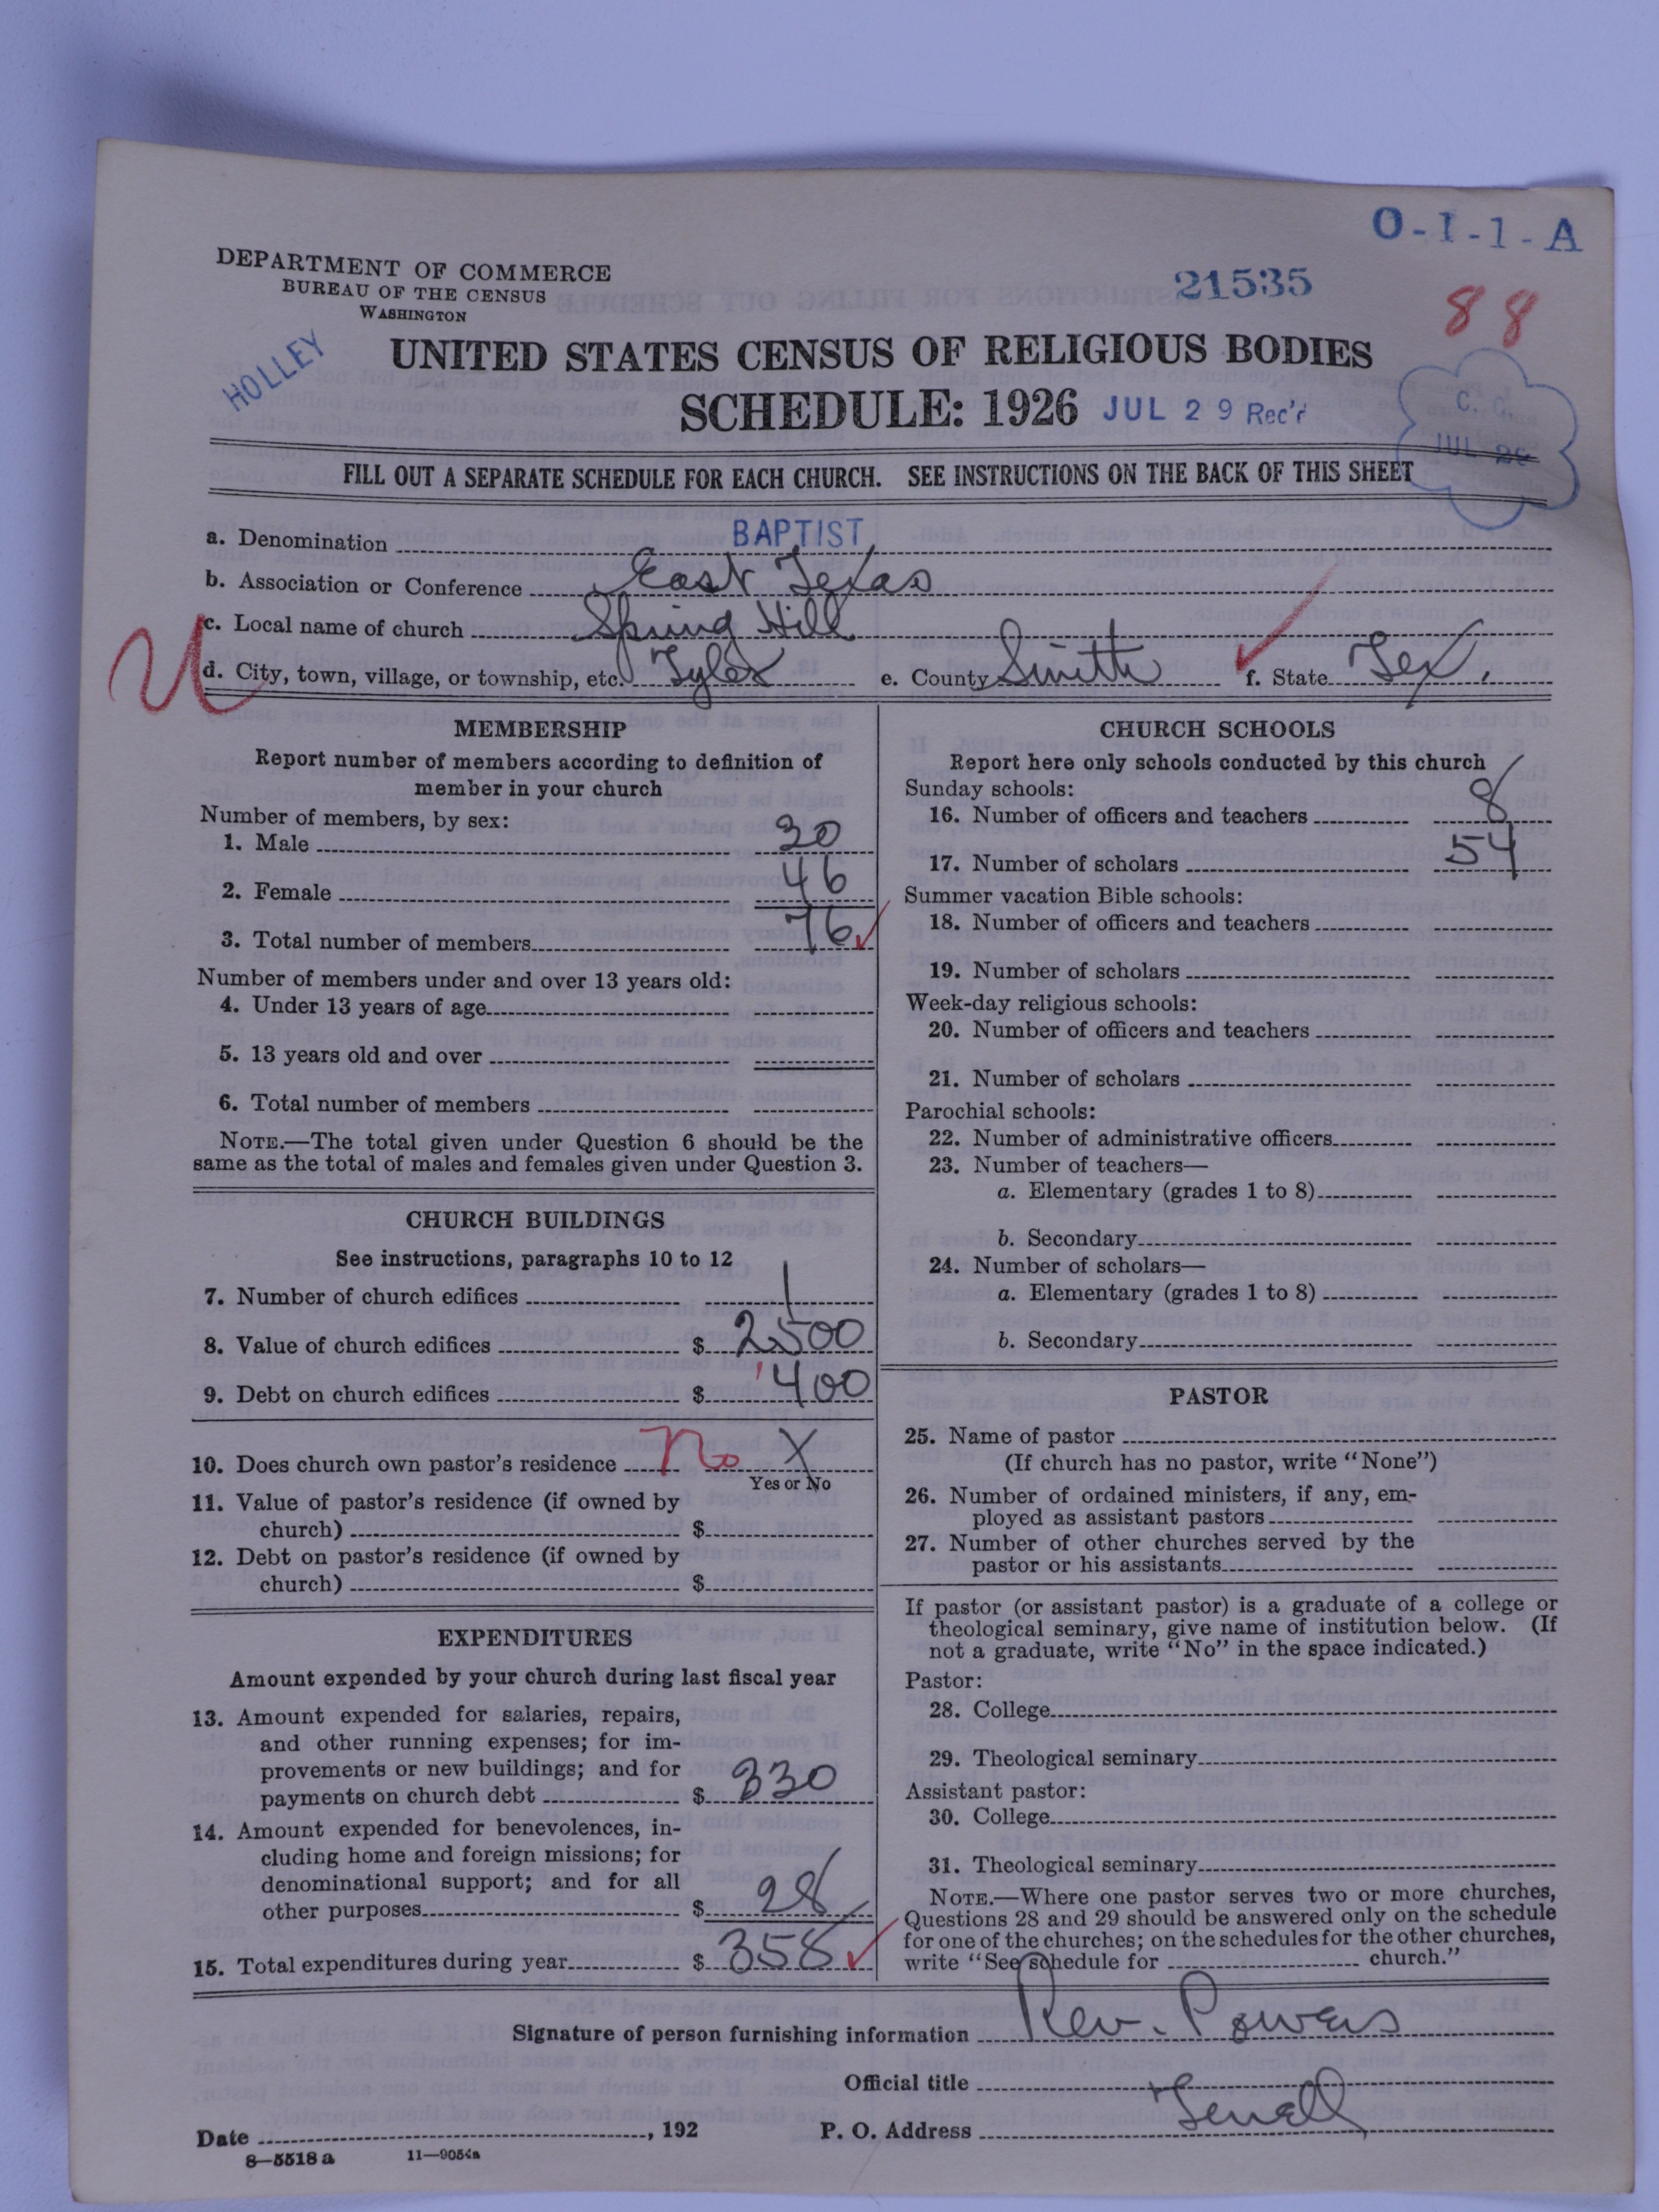 O-1-1-A
DEPARTMENT OF COMMERCE
BUREAU OF THE CENSUS
WASHINGTON
21535
88
HOLLEY
UNITED STATES CENSUS OF RELIGIOUS BODIES
SCHEDULE: 1926 JUL 29 Rec'd
C. C.
JUL 26
FILL OUT A SEPARATE SCHEDULE FOR EACH CHURCH. SEE INSTRUCTIONS ON THE BACK OF THIS SHEET
a. Denomination BAPTIST
b. Association or Conference East Texas
c. Local name of church Spring Hill
U
d. City, town, village, or township, etc. Tyler e. County Smith f. State Tex.
MEMBERSHIP
Report number of members according to definition of
member in your church
Number of members, by sex:
1. Male 30
2. Female 46
3. Total number of members 76
Number of members under and over 13 years old:
4. Under 13 years of age
5. 13 years old and over
6. Total number of members
NOTE.—The total given under Question 6 should be the
same as the total of males and females given under Question 3.
CHURCH BUILDINGS
See instructions, paragraphs 10 to 12
7. Number of church edifices 1
8. Value of church edifices $ 2500
9. Debt on church edifices $ 400
10. Does church own pastor's residence No X
Yes or No
11. Value of pastor's residence (if owned by
church) $
12. Debt on pastor's residence (if owned by
church) $
EXPENDITURES
Amount expended by your church during last fiscal year
13. Amount expended for salaries, repairs,
and other running expenses; for im-
provements or new buildings; and for
payments on church debt $ 330
14. Amount expended for benevolences, in-
cluding home and foreign missions; for
denominational support; and for all
other purposes $ 28
15. Total expenditures during year $ 358
CHURCH SCHOOLS
Report here only schools conducted by this church
Sunday schools:
16. Number of officers and teachers 8
17. Number of scholars 54
Summer vacation Bible schools:
18. Number of officers and teachers
19. Number of scholars
Week-day religious schools:
20. Number of officers and teachers
21. Number of scholars
Parochial schools:
22. Number of administrative officers
23. Number of teachers—
a. Elementary (grades 1 to 8)
b. Secondary
24. Number of scholars—
a. Elementary (grades 1 to 8)
b. Secondary
PASTOR
25. Name of pastor
(If church has no pastor, write "None")
26. Number of ordained ministers, if any, em-
ployed as assistant pastors
27. Number of other churches served by the
pastor or his assistants
If pastor (or assistant pastor) is a graduate of a college or
theological seminary, give name of institution below. (If
not a graduate, write "No" in the space indicated.)
Pastor:
28. College
29. Theological seminary
Assistant pastor:
30. College
31. Theological seminary
NOTE.—Where one pastor serves two or more churches,
Questions 28 and 29 should be answered only on the schedule
for one of the churches; on the schedules for the other churches,
write "See schedule for church."
Signature of person furnishing information Rev. Powers
Official title
Date , 192 P. O. Address
8—5518 a 11—9054a